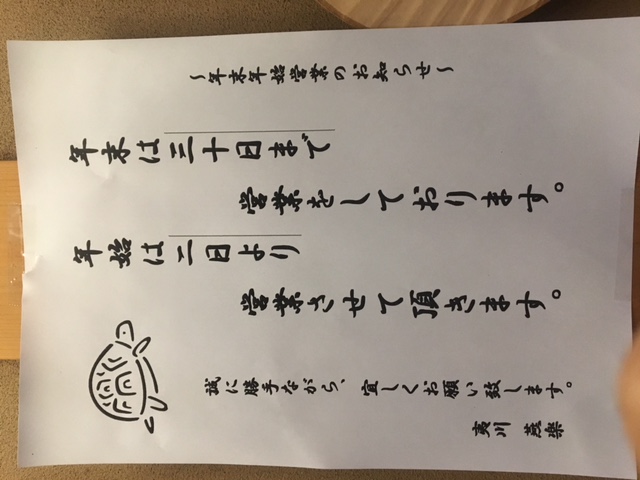 ～年末年始営業のお知らせ～
年末は三十日まで
営業をしております。
年始は二日より
営業させて頂きます。
誠に勝手ながら、宜しくお願い致します。
夷川 燕楽